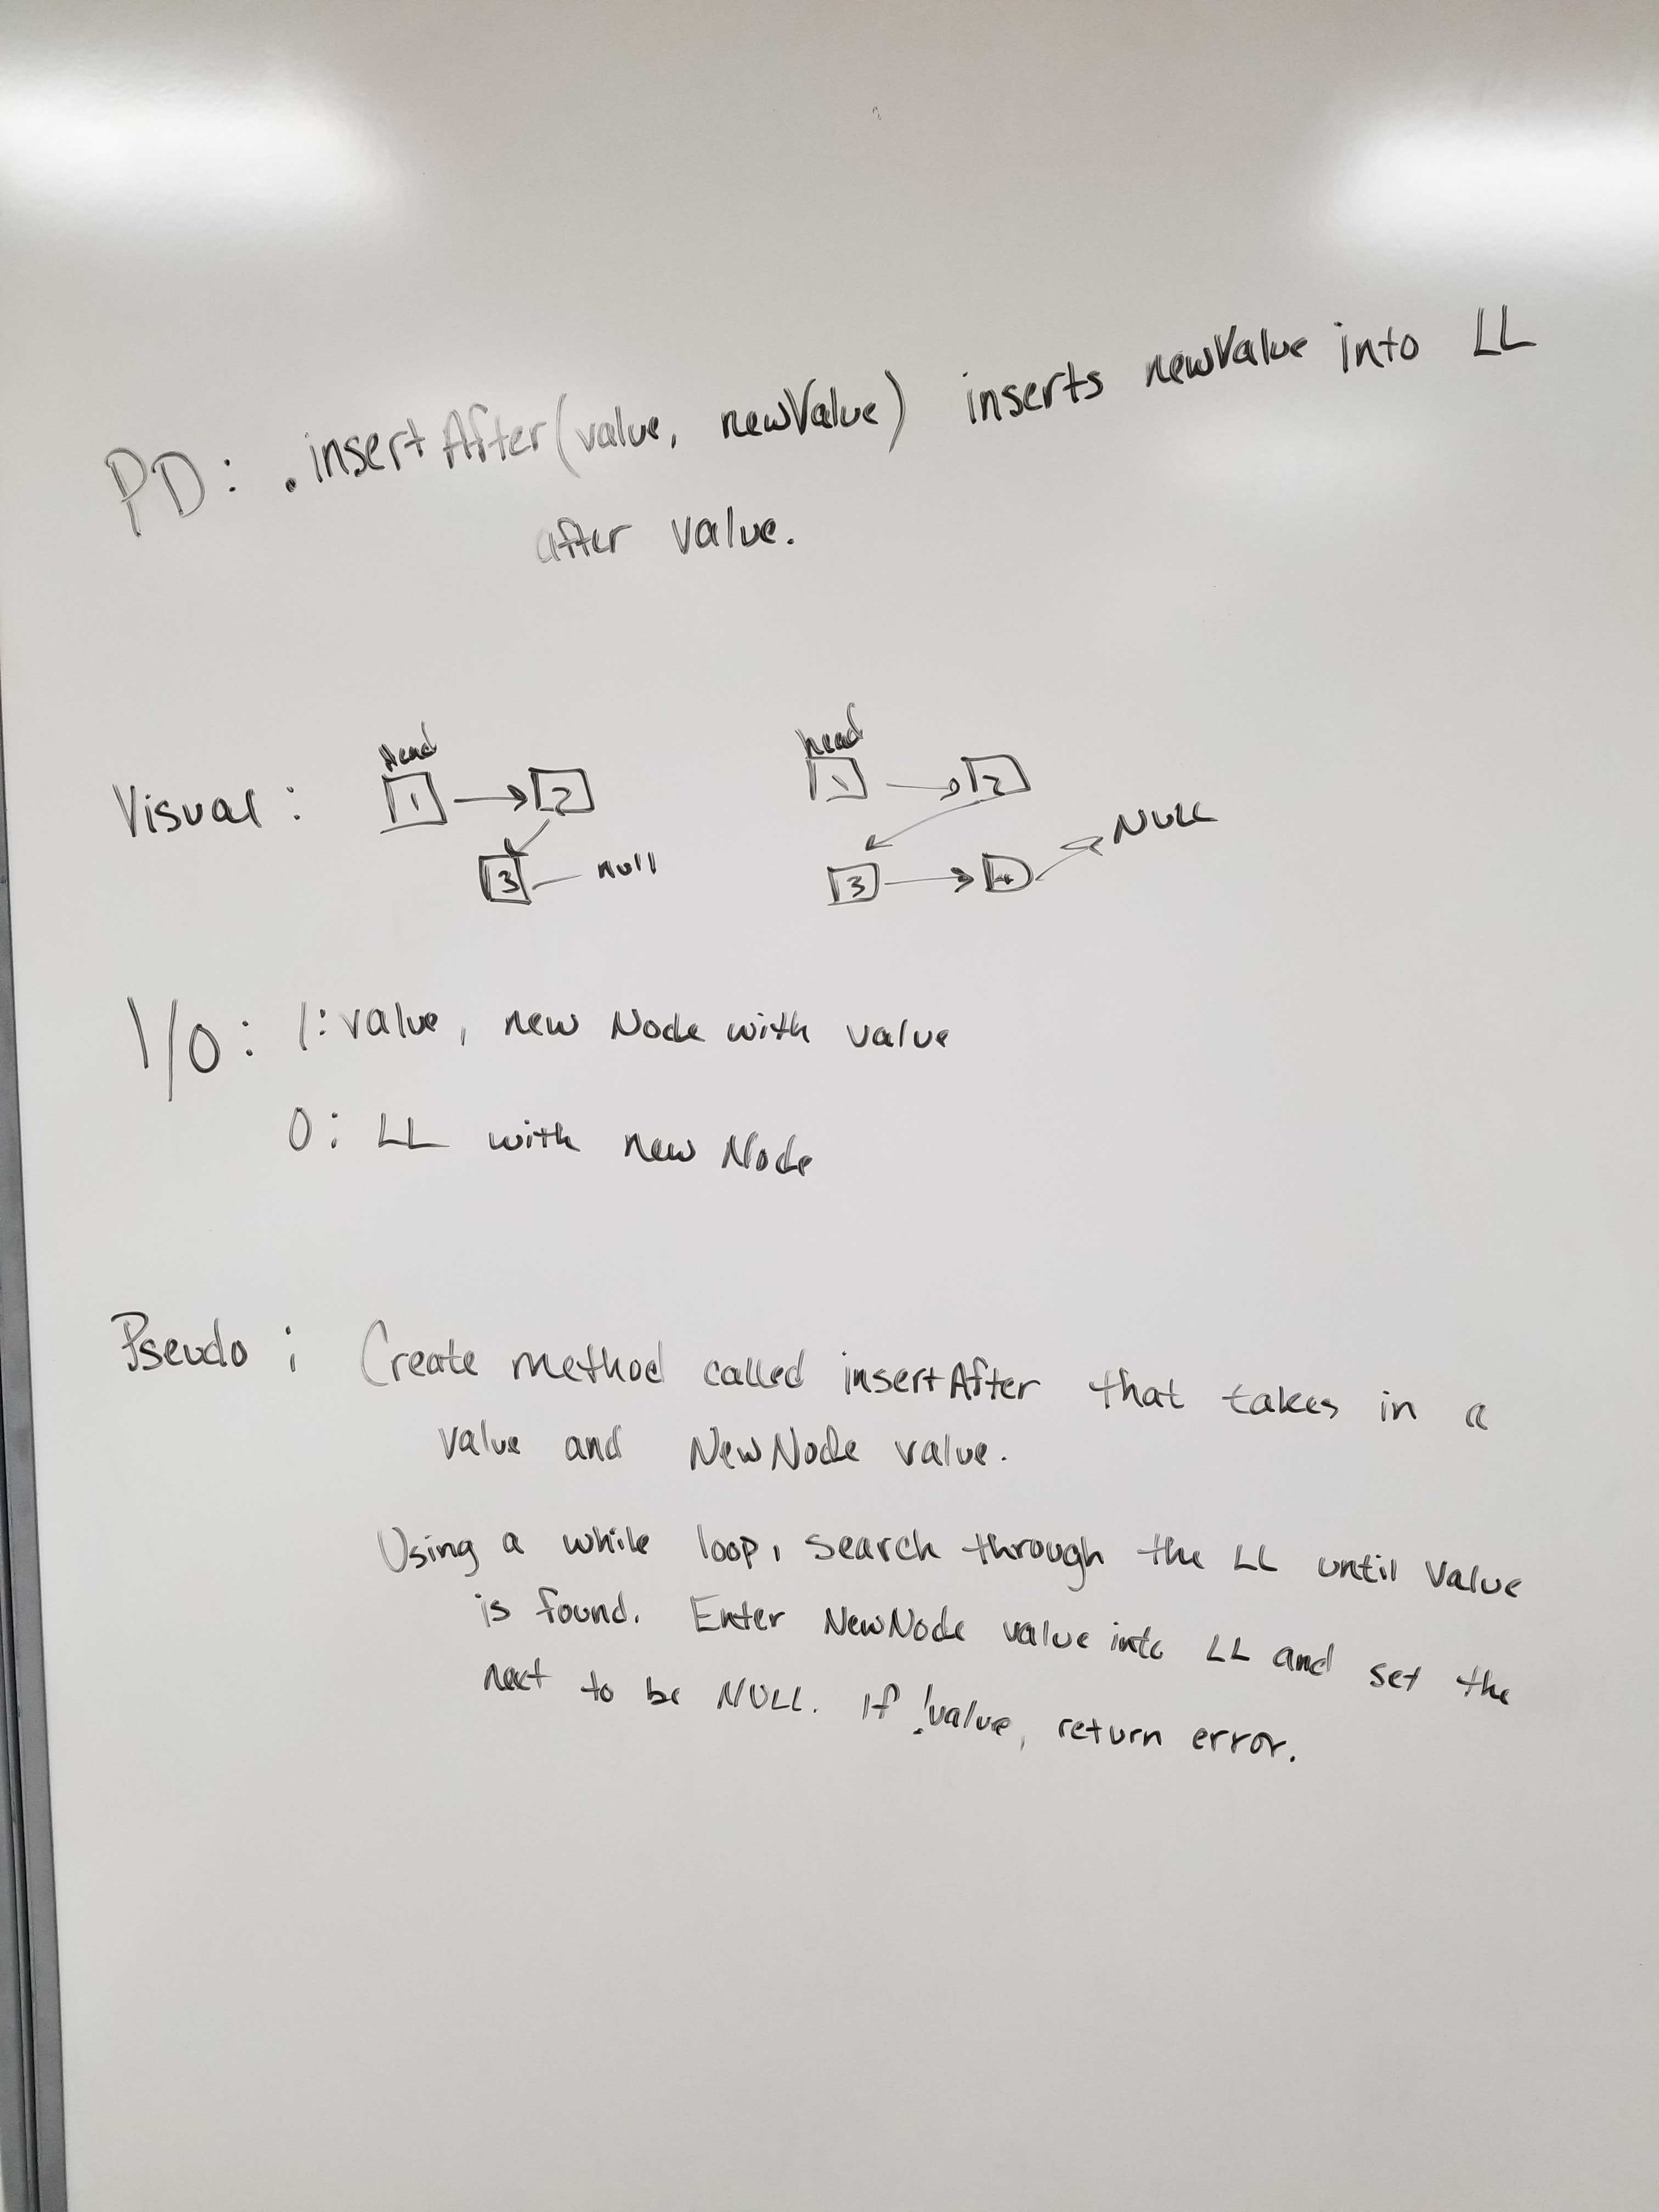 PD: .insertAfter(value, newValue) inserts newValue into LL
after value.
head head
Visual: 1 2 1 2
3 null 3 4 NULL
I/O: I: value, new Node with value
O: LL with new Node
Pseudo: Create method called insertAfter that takes in a
value and NewNode value.
Using a while loop, search through the LL until value
is found. Enter NewNode value into LL and set the
next to be NULL. If !value, return error.